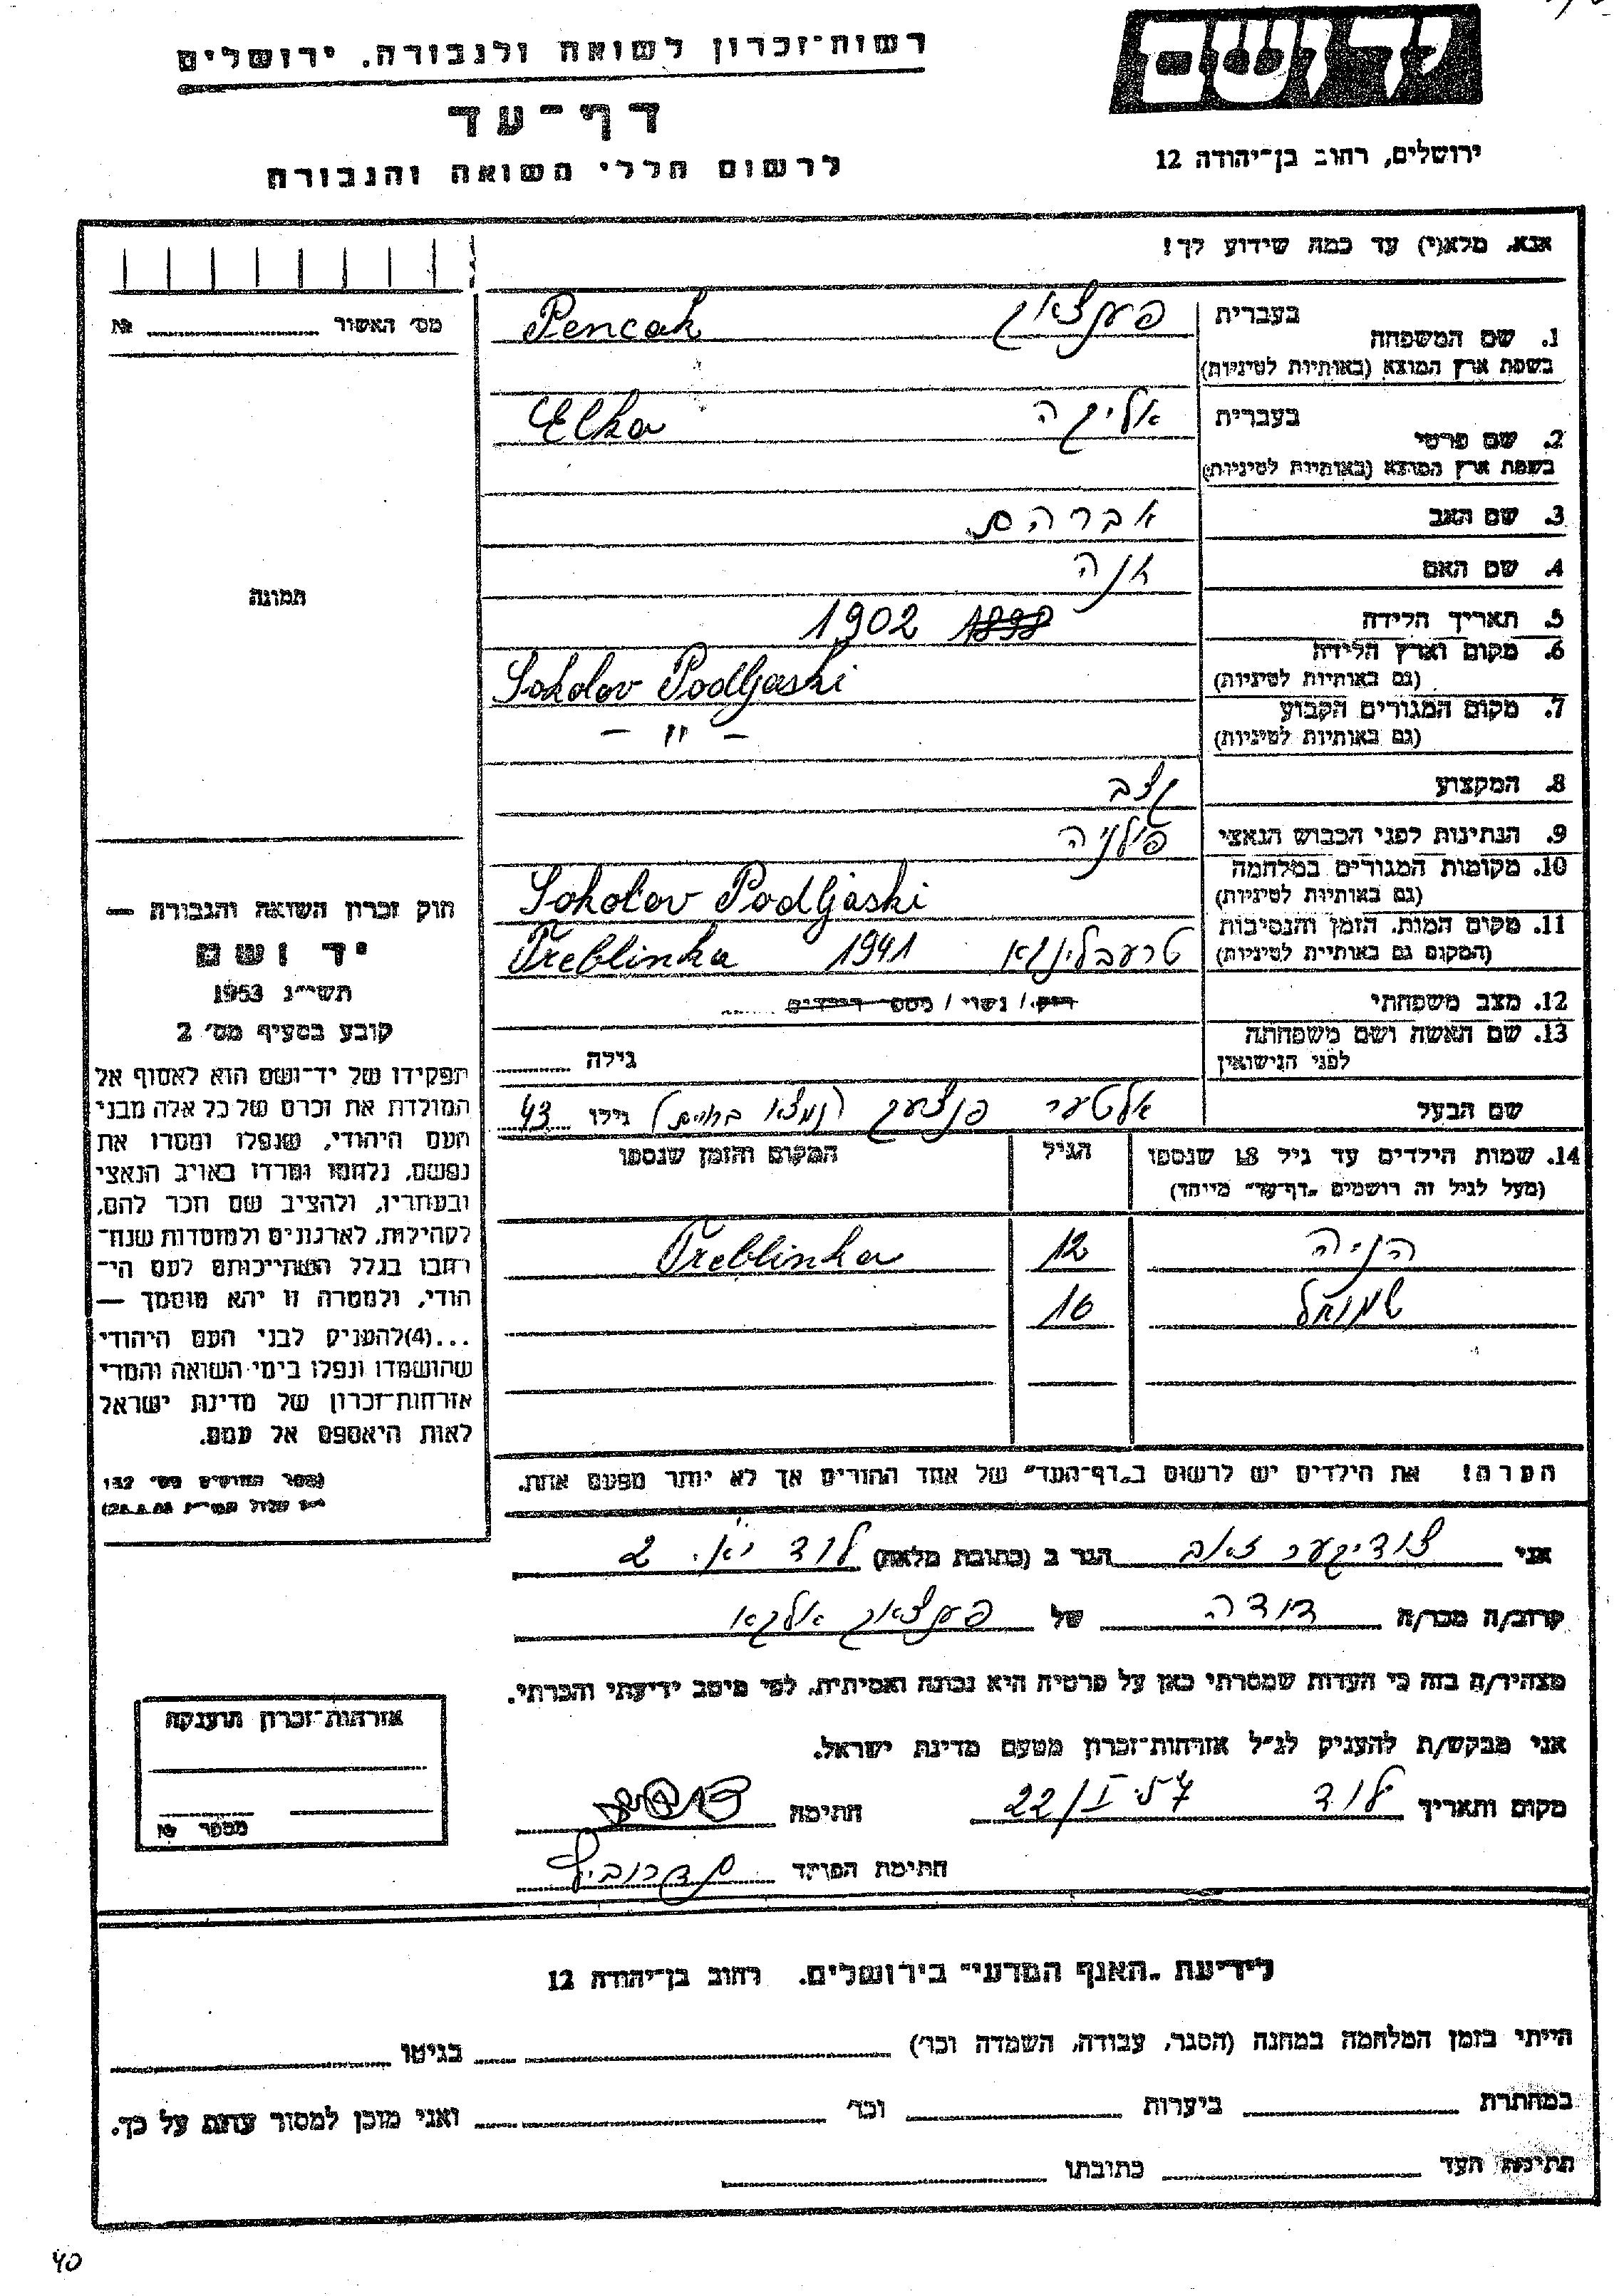 יד ושם
רשות־זכרון לשואה ולגבורה. ירושלים
דף־עד
לרשום חללי השואה והגבורה
ירושלים, רחוב בן־יהודה 12
אנא. מלא(י) עד כמה שידוע לך!
מס׳ האשור № 
1. שם המשפחה בעברית פענצאק Pencak
בשפת ארץ המוצא (באותיות לטיניות)
2. שם פרטי בעברית אליקה Elka
בשפת ארץ המוצא (באותיות לטיניות)
3. שם האב אברהם
4. שם האם חנה
5. תאריך הלידה 1898 1902
6. מקום וארץ הלידה Sokolov Podljaski
(גם באותיות לטיניות)
7. מקום המגורים הקבוע – יי –
(גם באותיות לטיניות)
8. המקצוע קצב
9. הנתינות לפני הכבוש הנאצי פילניה
10. מקומות המגורים במלחמה Sokolov Podljaski
(גם באותיות לטיניות)
11. מקום המות. הזמן והנסיבות טרעבלינקא 1941 Treblinka
(המקום גם באותיות לטיניות)
12. מצב משפחתי רוק / נשוי / מספר הילדים
13. שם האשה ושם משפחתה
לפני הנישואין גילה
שם הבעל אלטער פנצעק (נמצא בחיים) גילו 43
14. שמות הילדים עד גיל 18 שנספו הגיל המקום והזמן שנספו
(מעל לגיל זה רושמים „דף־עד״ מיוחד)
הניה 12 Treblinka
שמואל 16
הערה! את הילדים יש לרשום ב„דף־העד״ של אחד ההורים אך לא יותר מפעם אחת.
תמונה
חוק זכרון השואה והגבורה —
יד ושם
תשי״ג 1953
קובע בסעיף מס׳ 2
תפקידו של יד־ושם הוא לאסוף אל
המולדת את זכרם של כל אלה מבני
העם היהודי, שנפלו ומסרו את
נפשם, נלחמו ומרדו באויב הנאצי
ובעוזריו, ולהציב שם וזכר להם,
לקהילות, לארגונים ולמוסדות שנח־
רבו בגלל השתייכותם לעם הי־
הודי, ולמטרה זו יהא מוסמך —
...(4) להעניק לבני העם היהודי
שהושמדו ונפלו בימי השואה והמרי
אזרחות־זכרון של מדינת ישראל
לאות היאספם אל עמם.
(ספר החוקים מס׳ 132
אני זאב הגר ב (כתובת מלאה) לוד 2
קרוב/ה מכר/ה דודה של פענצאק אלקא
מצהיר/ה בזה כי העדות שמסרתי כאן על פרטיה היא נכונה ואמיתית, לפי מיטב ידיעתי והכרתי.
אני מבקש/ת להעניק לנ״ל אזרחות־זכרון מטעם מדינת ישראל.
מקום ותאריך לוד 22/I 57 חתימה
חתימת הפוקד
אזרחות־זכרון תוענקה
מספר №
לידיעת „האגף המדעי״ בירושלים. רחוב בן־יהודה 12
הייתי בזמן המלחמה במחנה (הסגר, עבודה, השמדה וכו׳) בגיטו
במחתרת ביערות וכו׳ ואני מוכן למסור עדות על כך.
חתימת העד כתובתו
40